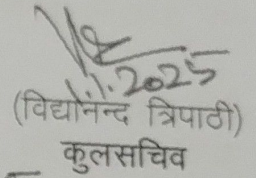 2025
(विद्यानन्द त्रिपाठी)
कुलसचिव